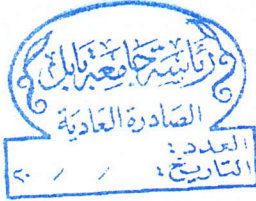 رئاسة جامعة بابل
الصادرة العادية
العدد :
التاريخ : / / ٢٠